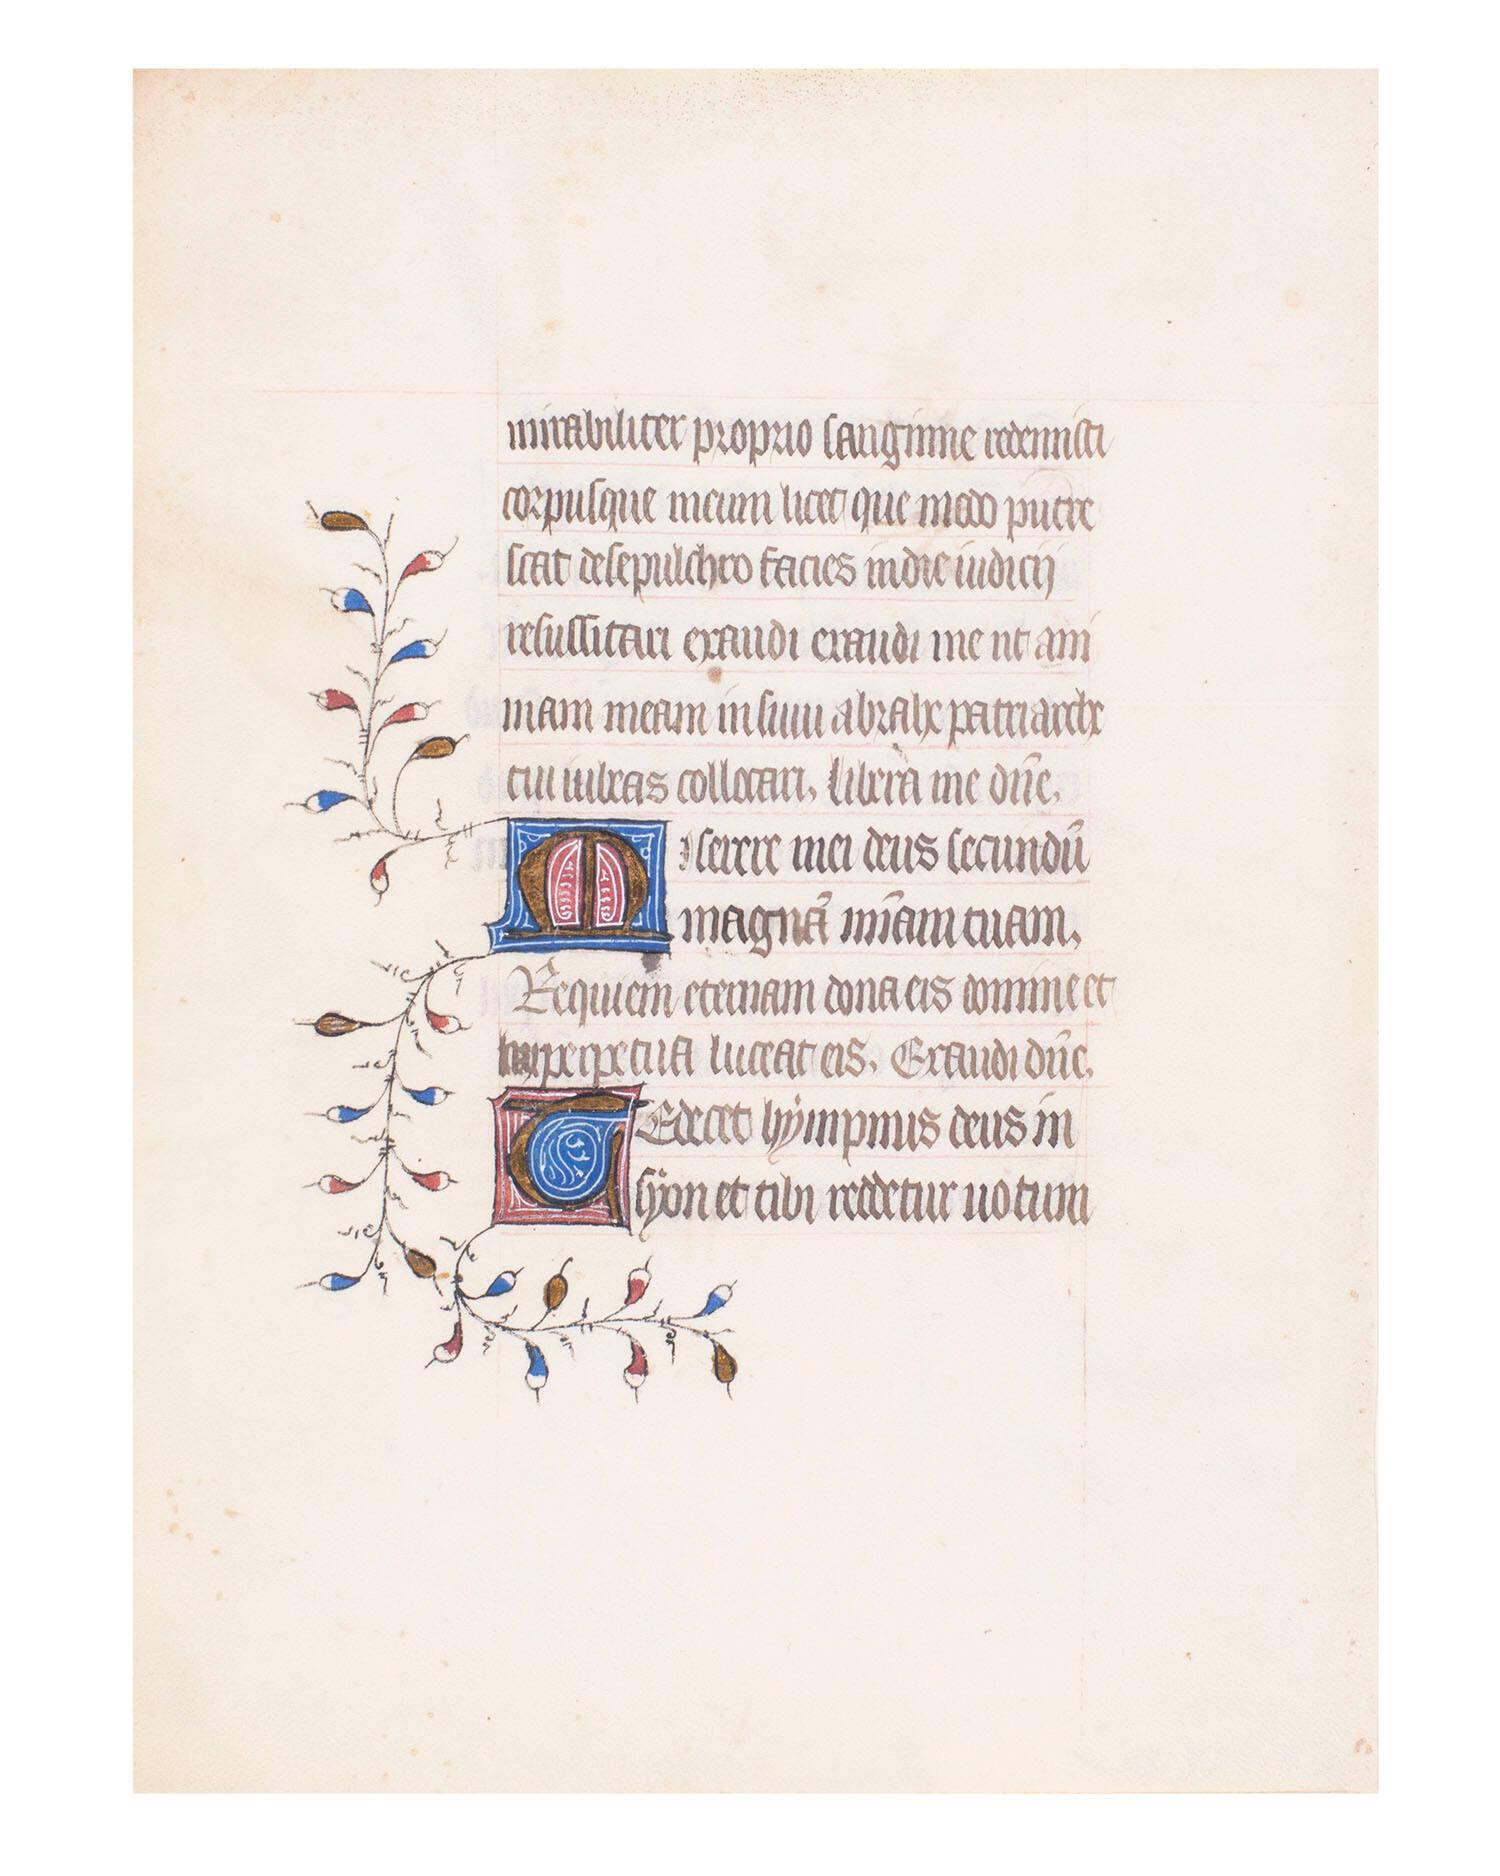 mirabiliter proprio sanguine redemisti
corpusque meum licet que modo putre
scat de sepulchro facies in die iudicij
resussitari exaudi exaudi me ut ani
mam meam in sinu abrahe patriarche
tui iubeas collocari, libera me dn̄e,
Miserere mei deus secundū
magnā mi̅am tuam,
Requiem eternam dona eis domine et
lux perpetua luceat eis, Exaudi dn̄e,
TE decet hÿmpnus deus in
sÿon et tibi reddetur uotum